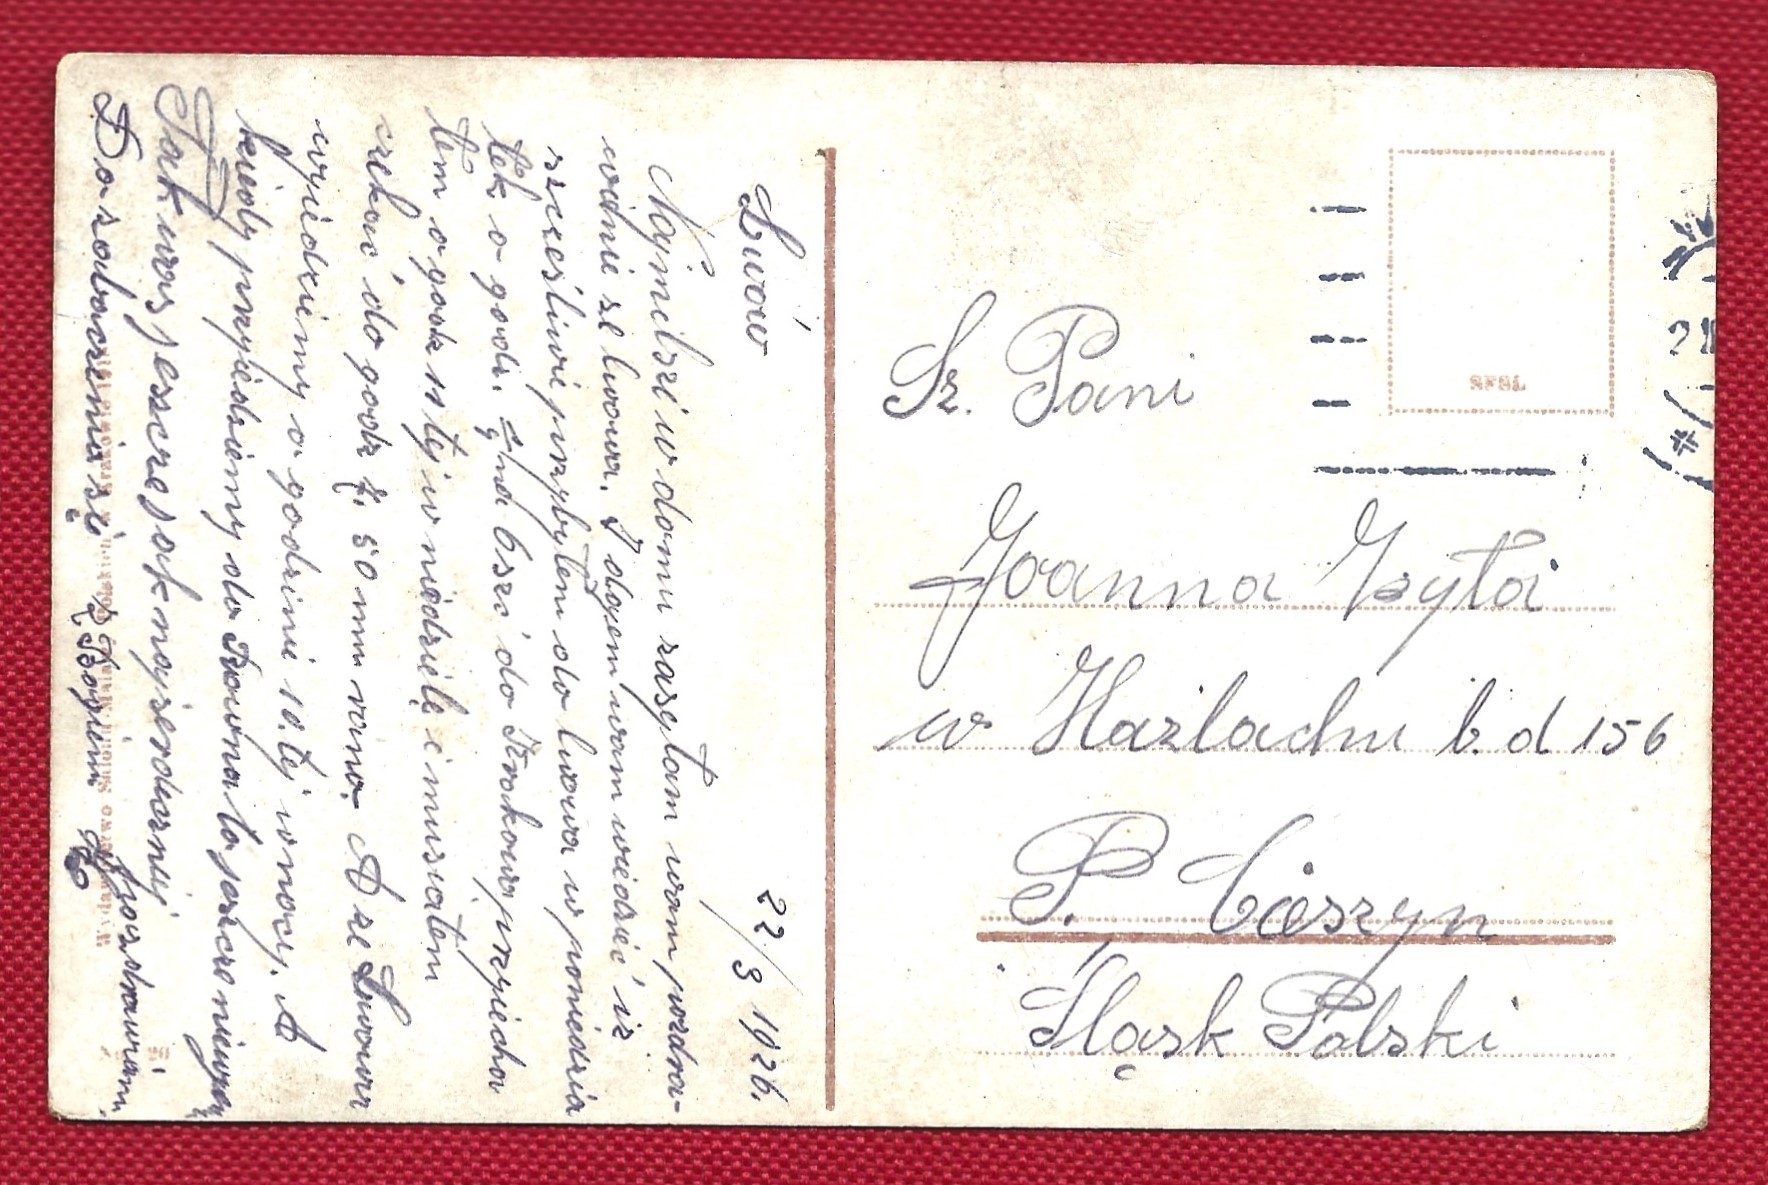 Lwów 22/3 1926.
Najmilsi w domu zasełam wam pozdro-
wdnie ze lwowa. I dajem wam wiedzieć iż
szcześliwie przybyłem do lwowa w poniedzia
łek o godz. na 6szi do Krakowa przyjecha
łem o godz 11 tej w niedzielę i musiałem
czekać do godz 7. 50 min rano. A ze Lwowa
wyjedziemy o godzinie 10.tej w nocy. A
kiedy przyjedziemy do Rowna to jeszcze niewiem
Tak was jeszcze jak najserdeczniej
pozdrawiam.
Do zobaczenia się z Bogiem
Sz. Pani
Joanna Pszyta
w Hazlachu l. d 156
P. Cieszyn
Śląsk Polski
SFSL